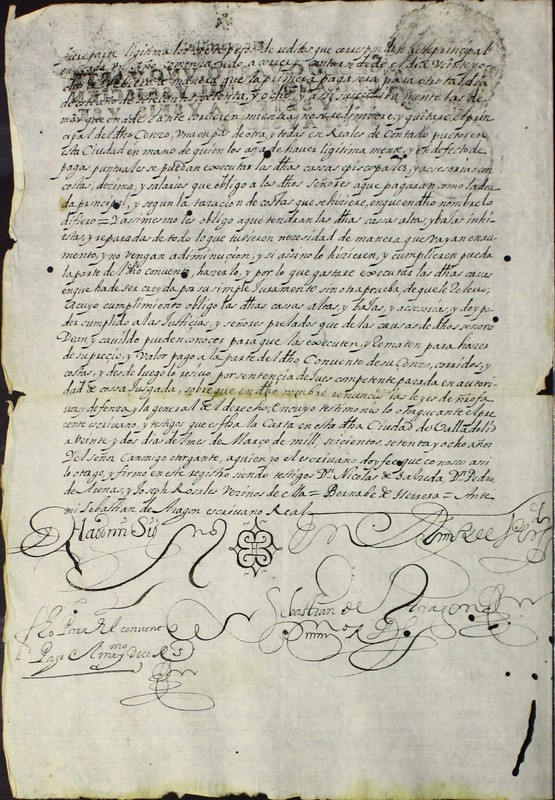 fuere parte legitima los pesos de reditos que corresponden a este principal
en cada un año comenzando a correr y contarse desde el dia veinte y o
cho de Febrero de manera que la primera paga sera para otro tal dia
de setecientos setenta, y ocho, y assi susecibamente las de
mas que en adelante corrieren mientras no se redimiere, y quitare el prin
cipal del dho Censo, Una en pos de otra, y todas en Reales de Contado puestos en
esta Ciudad en mano de quien los aya de haver legitima mente, y en defecto de
pagas puntuales se puedan executar las dhas cassas episcopales, y acesorias con
costas, decima, y salarios que obligo a los dhos señores a que pagaran como la deu
da principal, y segun la tazacion de costas que se hiziere, en que en dho nombre lo
difiero = Y assimesmo les obligo a que tendran las dhas cassas altas, y bajas inhi
estas, y reparadas de todo lo que tubieren necesidad de manera que vayan en au
mento, y no vengan a diminucion, y si assi no lo hizieren, y cumplieren pueda
la parte del dho convento, hazerlo, y por lo que gastare executar las dhas cassas
en que ha de ser creyda por su simple Juramento sin otra prueba, de que le relevo;
a cuyo cumplimiento obligo las dhas cassas altas, y bajas, y acesorias, y doy po
der cumplido a las Justicias, y señores prelados que de las causas de dhos señores
Dean, y cavildo pueden conocer para que las executen, y Rematen para hazer
de su precio, y Valor pago a la parte del dho Convento de su Censo, corridos, y
costas, y desde luego lo resivo por sentencia de Jues competente pasada en autori
dad de cossa Jusgada, sobre que en dho nombre renuncio las leyes de mi fa
vor, y defenza, y la general del derecho; En cuyo testimonio lo otorgue ante el pre
sente escrivano, y testigos que es fha la Carta en esta dha Ciudad de Valladolid
a veinte, y dos dias del mes de Março de mill, seicientos, setenta, y ocho años
Y el señor Canonigo otorgante, a quien yo el escrivano doy fee que conosco assi
lo otorgo, y firmo en este registro siendo testigos Dn. Nicolas de Dn. Pedro
de Arenas, y Joseph Rosales Vezinos de ella = Bernabe de Herrera = Ante
mi Sebastian de Aragon escrivano Real
Sebastian de Aragon
Para el convento
Pago